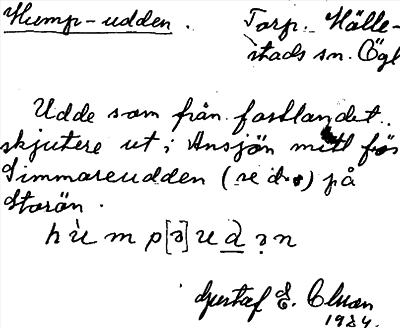 Hump-udden. Torp. Hälle-
stads sn. Ögl
Udde som från fastlandet
skjutere ut i Ansjön mitt för
Timmareudden (se d.o) på
Storän.
hùmp[ə]udən
Gustaf E. Olson
1934.